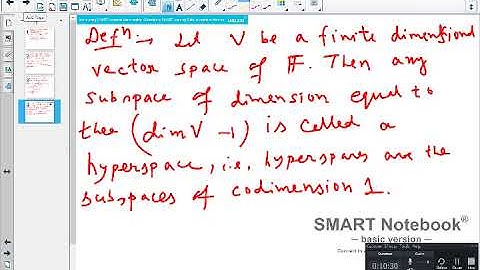 Defn :→ Let V be a finite dimensional
vector space of F. Then any
subspace of dimension equal to
thee (dim V -1) is called a
hyperspace, i.e, hyperspaces are the
subspaces of codimension 1.
SMART Notebook®
— basic version —
0:10:30